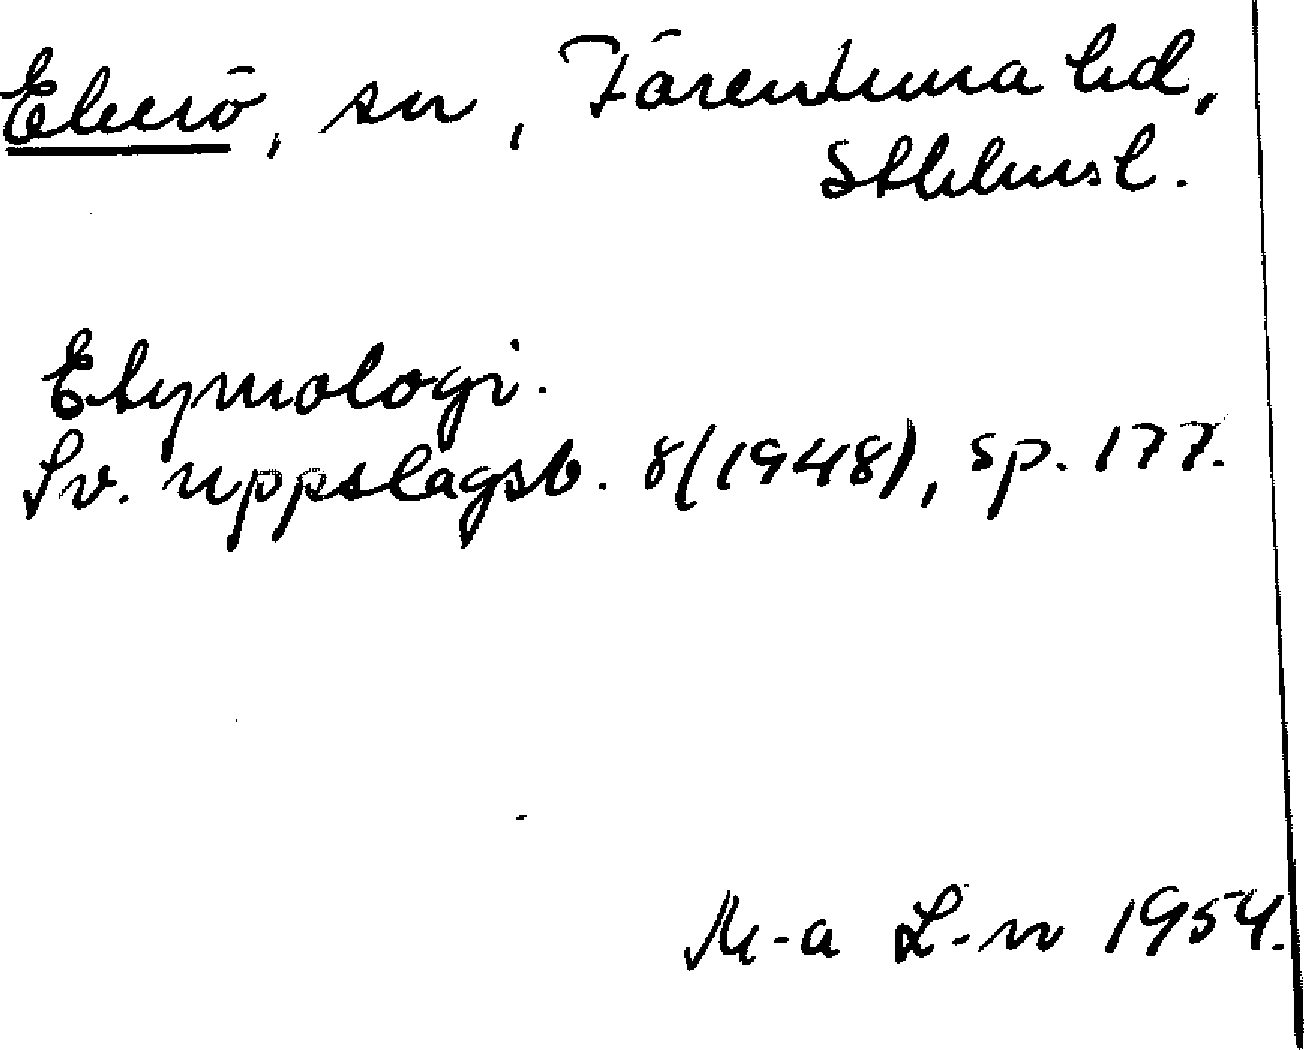 Ekerö, sn, Färentuna hd,
Sthlmsl.
Etymologi.
Sv. uppslagsb. 8(1948), sp. 177.
M-a L-n 1954.